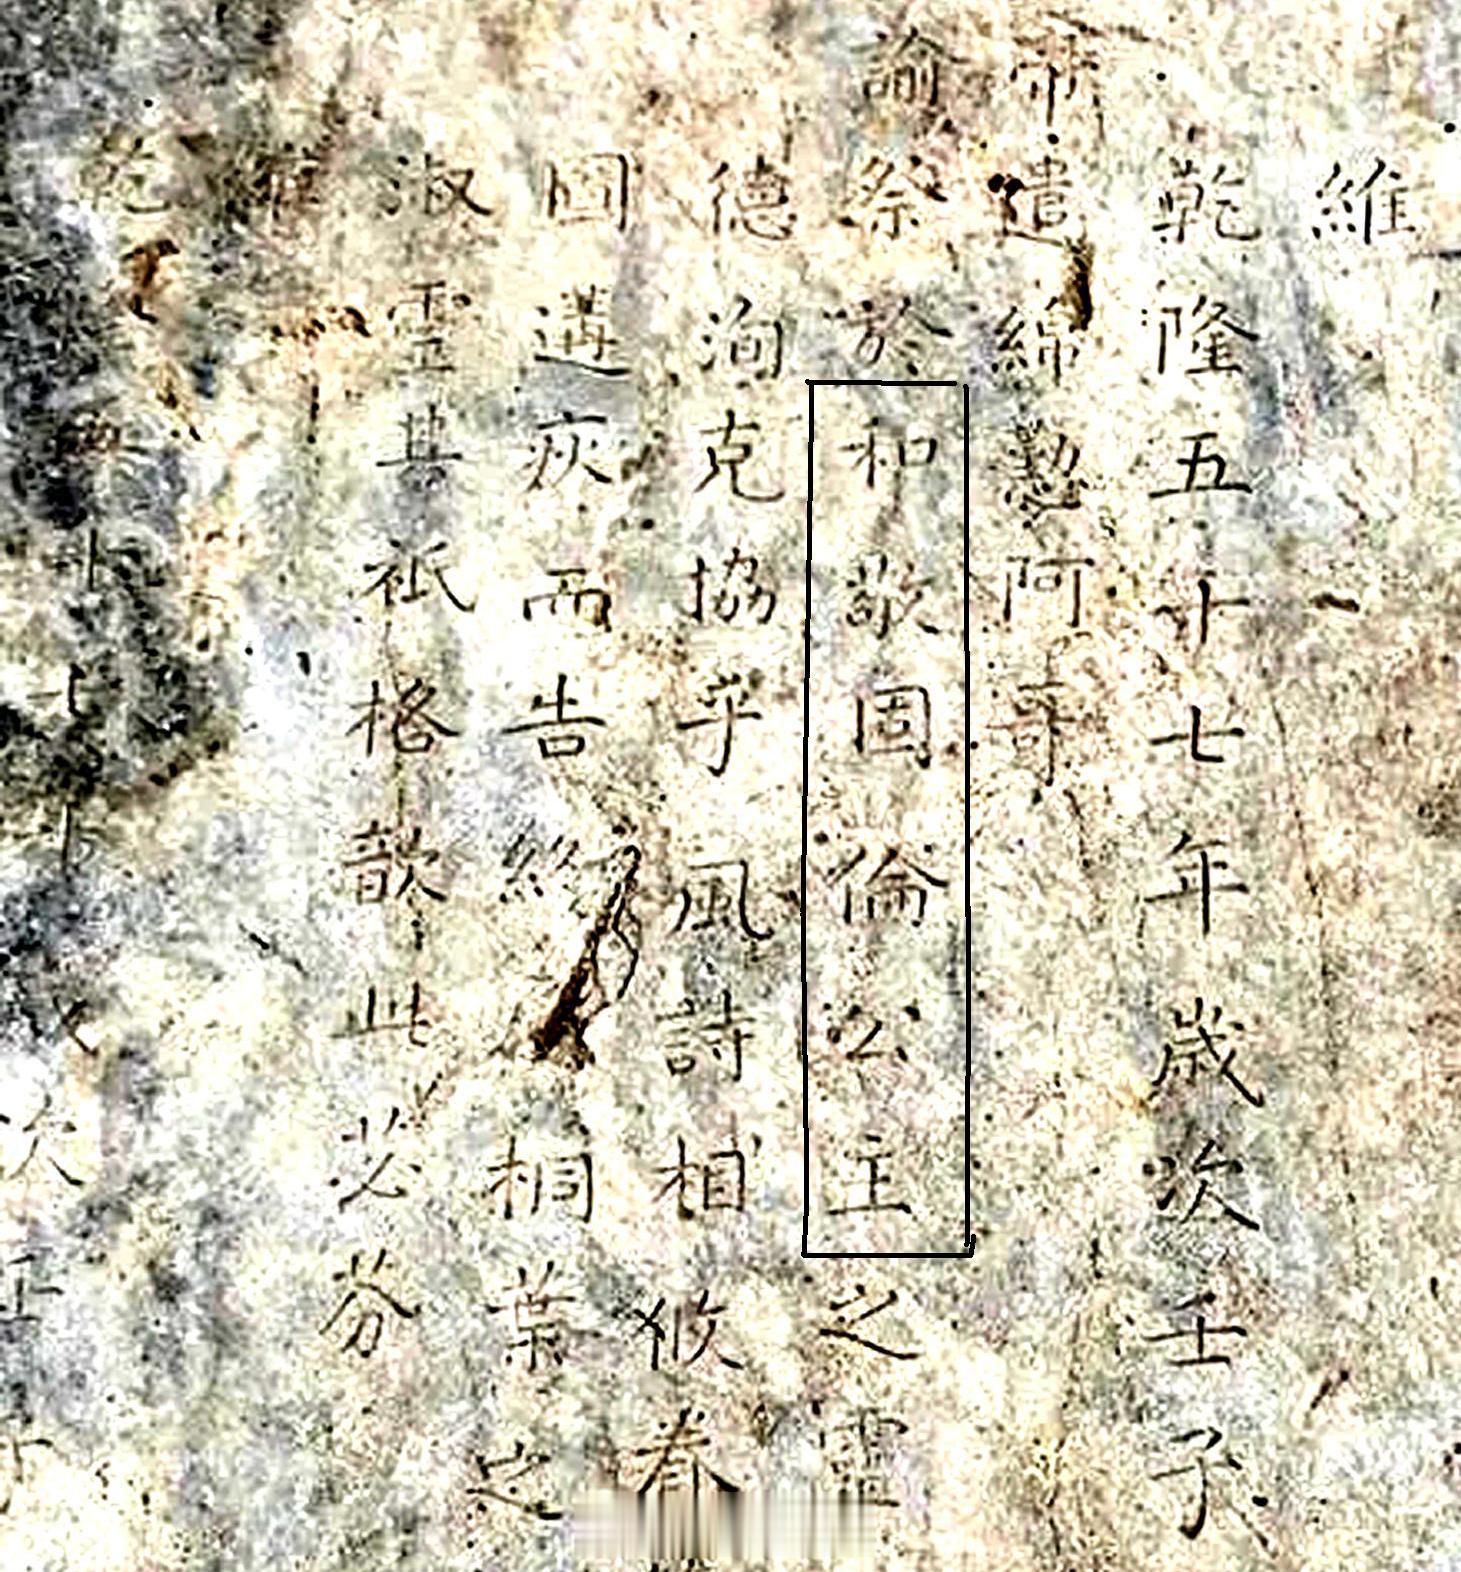 維
乾隆五十七年歲次壬子
帝遣綿懃阿哥
諭祭於和敬固倫公主之靈
德洵克協乎風詩相攸眷
國遘疢而告終桐葉之
淑靈其祇格歆此苾芬
次壬